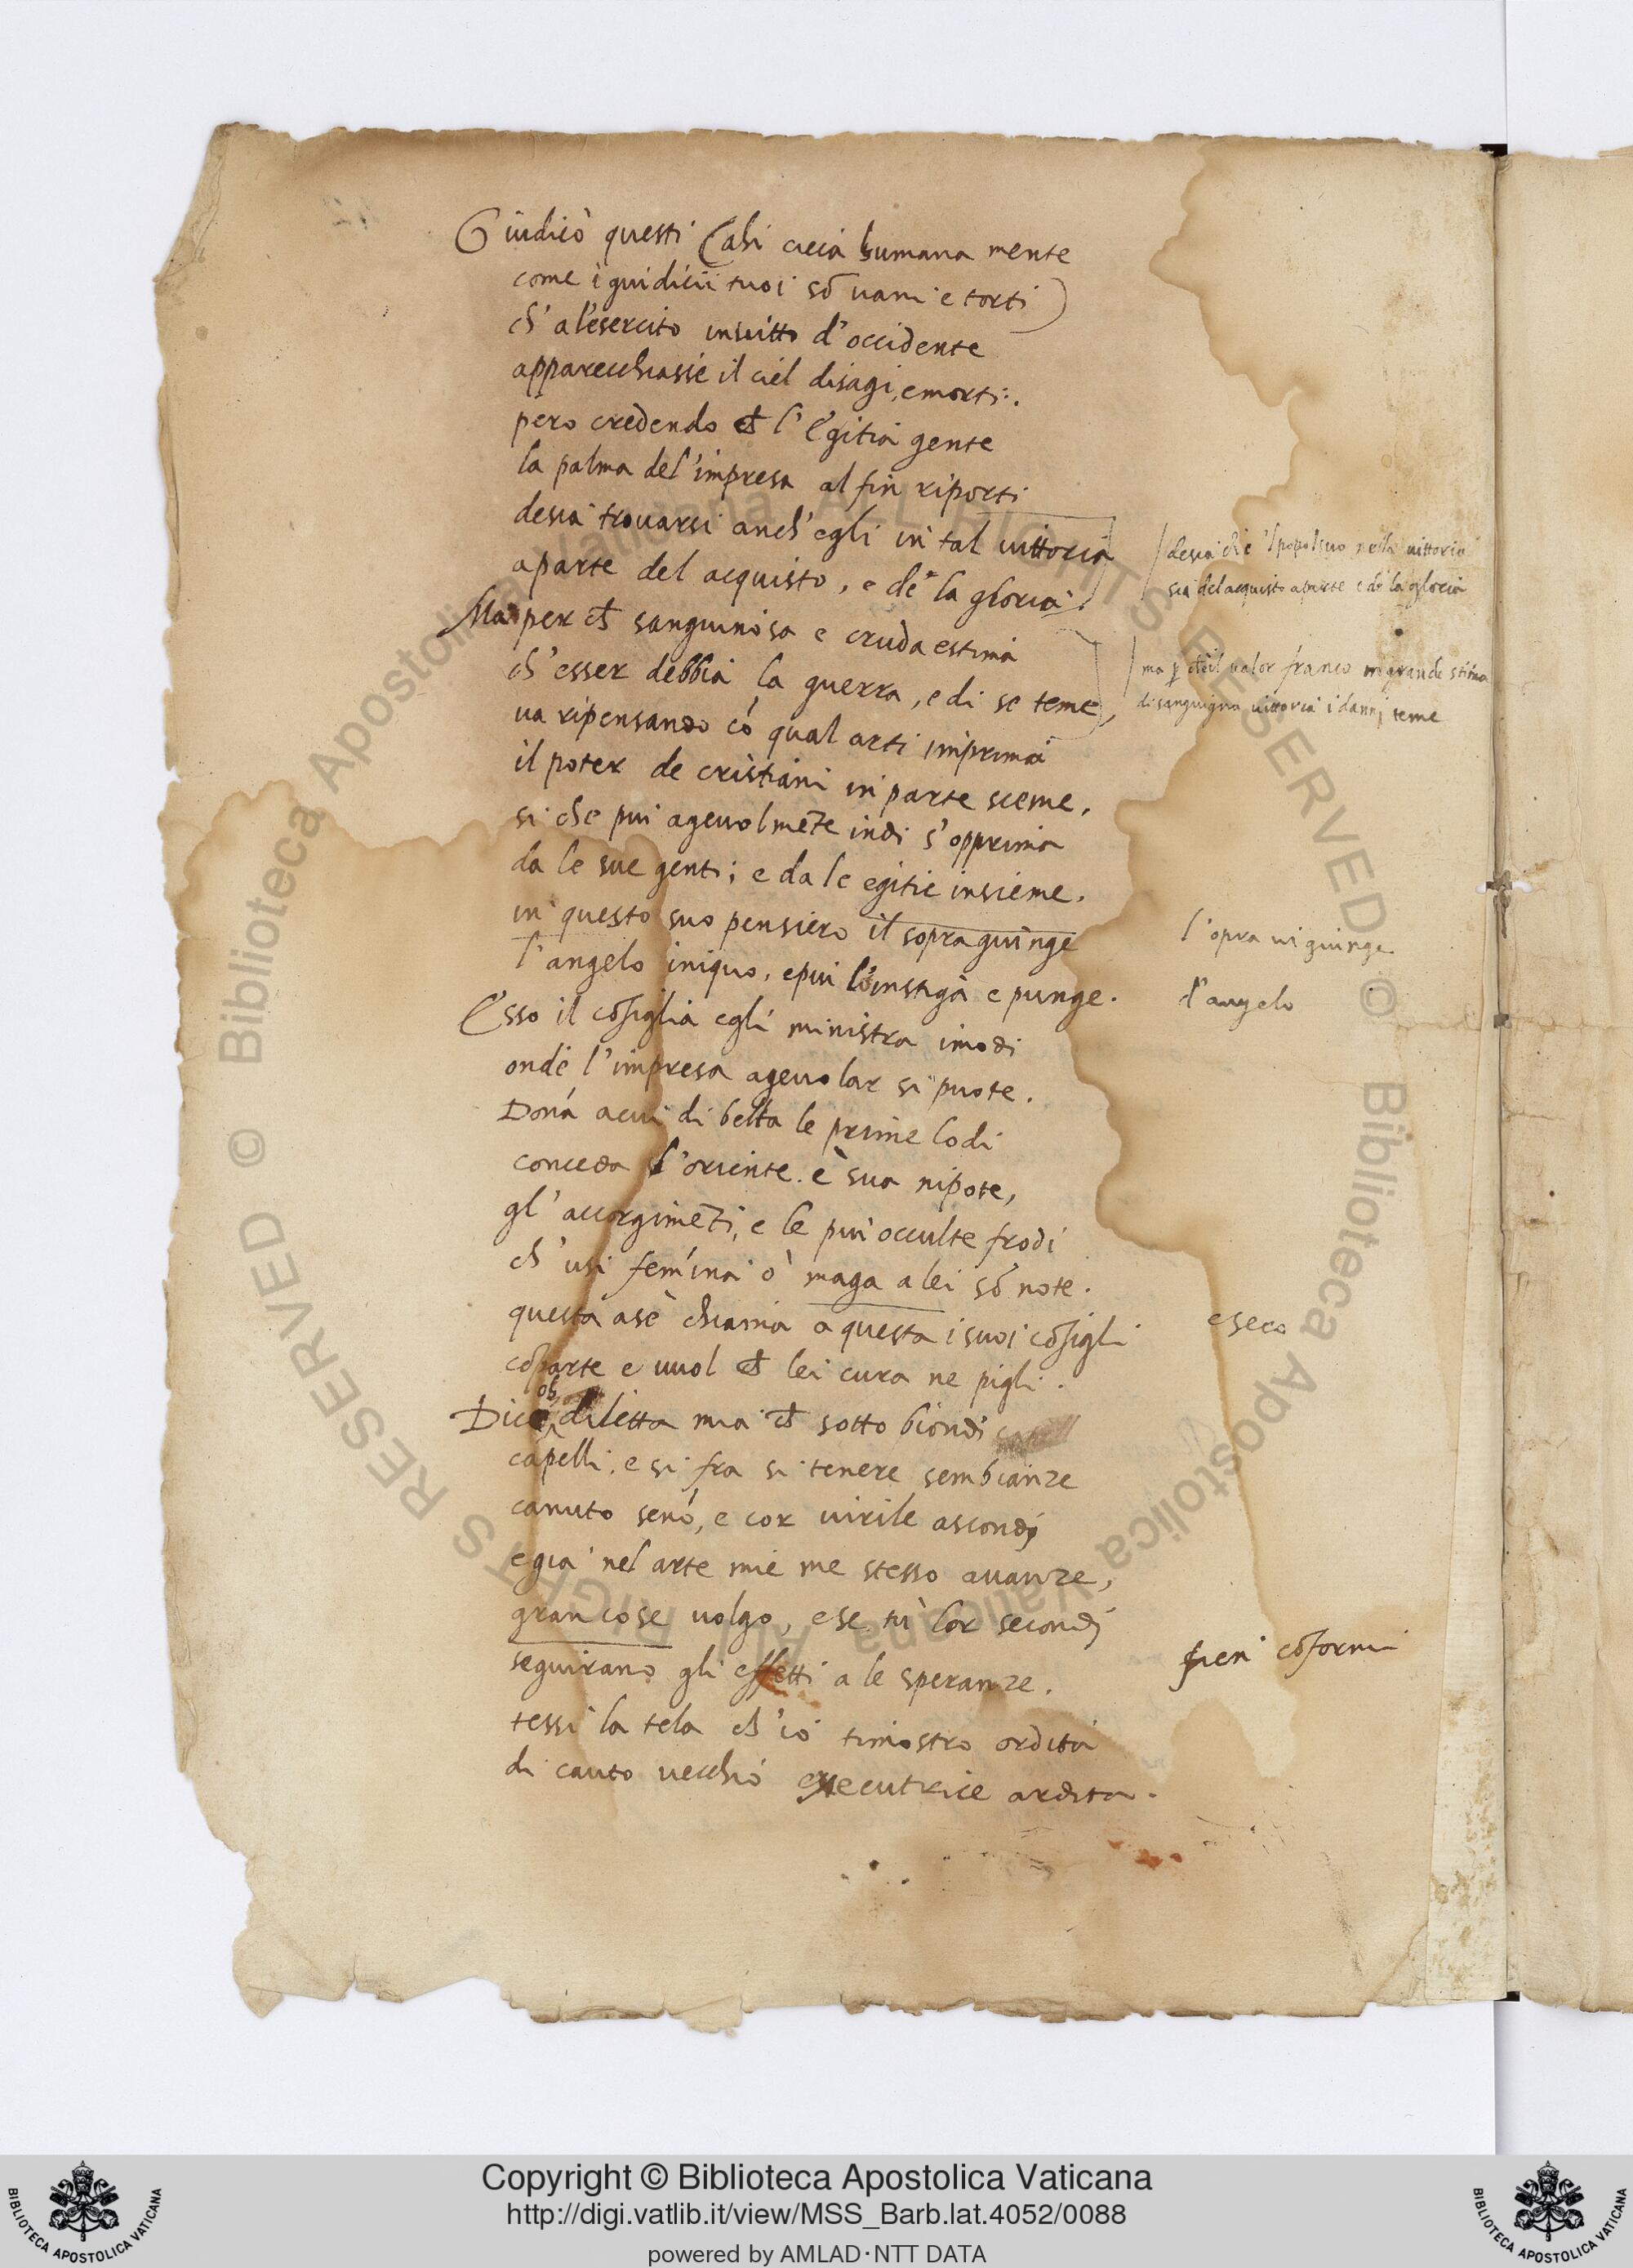 Giudicò questi (ahi cieca humana mente
come i giudicii tuoi sõ vani e torti)
ch' a l'esercito invitto d'occidente
apparecchiasse il ciel disagi, e morti:.
però credendo ch l'Egitia gente
la palma del'impresa al fin riporti
desia trovarsi anch'egli in tal vittoria
a parte del acquisto, e de la gloria.
desia che 'l popol suo nella vittoria
sia del acquisto a parte e de la gloria
Ma per ch sanguinosa e cruda estima
ch'esser debbia la guerra, e di se teme,
ma p ch il valor franco in grande stima
di sanguigna vittoria i danni teme
va ripensando cõ qual arti imprima
il poter de cristiani in parte sceme,
si che piu agevolmēte indi s'opprima
da le sue genti; e da le egitie insieme.
in questo suo pensiero il sopragiunge
l'opra vi giunge
l'angelo iniquo, e piu l'instiga e punge.
d'angelo
Esso il cõsiglia egli ministra i modi
onde l'impresa agevolar si puote.
Donā a cui di belta le prime lodi
conceda l'oriente. è sua nipote,
gl'accorgimēti, e le piu occulte frodi
ch'usi femina ò maga a lei sõ note.
questa a sè chiama a questa i suoi cõsigli
e seco
cõparte e vuol ch lei cura ne pigli.
Dice, oh diletta mia ch sotto biondi
capelli, e si fra si tenere sembianze
canuto senò, e cor virile ascondi
e gia nel arte mie me stesso avanze,
gran cose volgo, e se tu lor secondi
seguirano gli effetti a le speranze.
fien cõformi
tessi la tela ch'io ti mostro ordita
di cauto vecchio essecutrice ardita.
© Biblioteca Apostolica Vaticana ALL RIGHTS RESERVED
© Biblioteca Apostolica Vaticana ALL RIGHTS RESERVED
Copyright © Biblioteca Apostolica Vaticana
http://digi.vatlib.it/view/MSS_Barb.lat.4052/0088
powered by AMLAD·NTT DATA
BIBLIOTECA APOSTOLICA VATICANA
BIBLIOTECA APOSTOLICA VATICANA